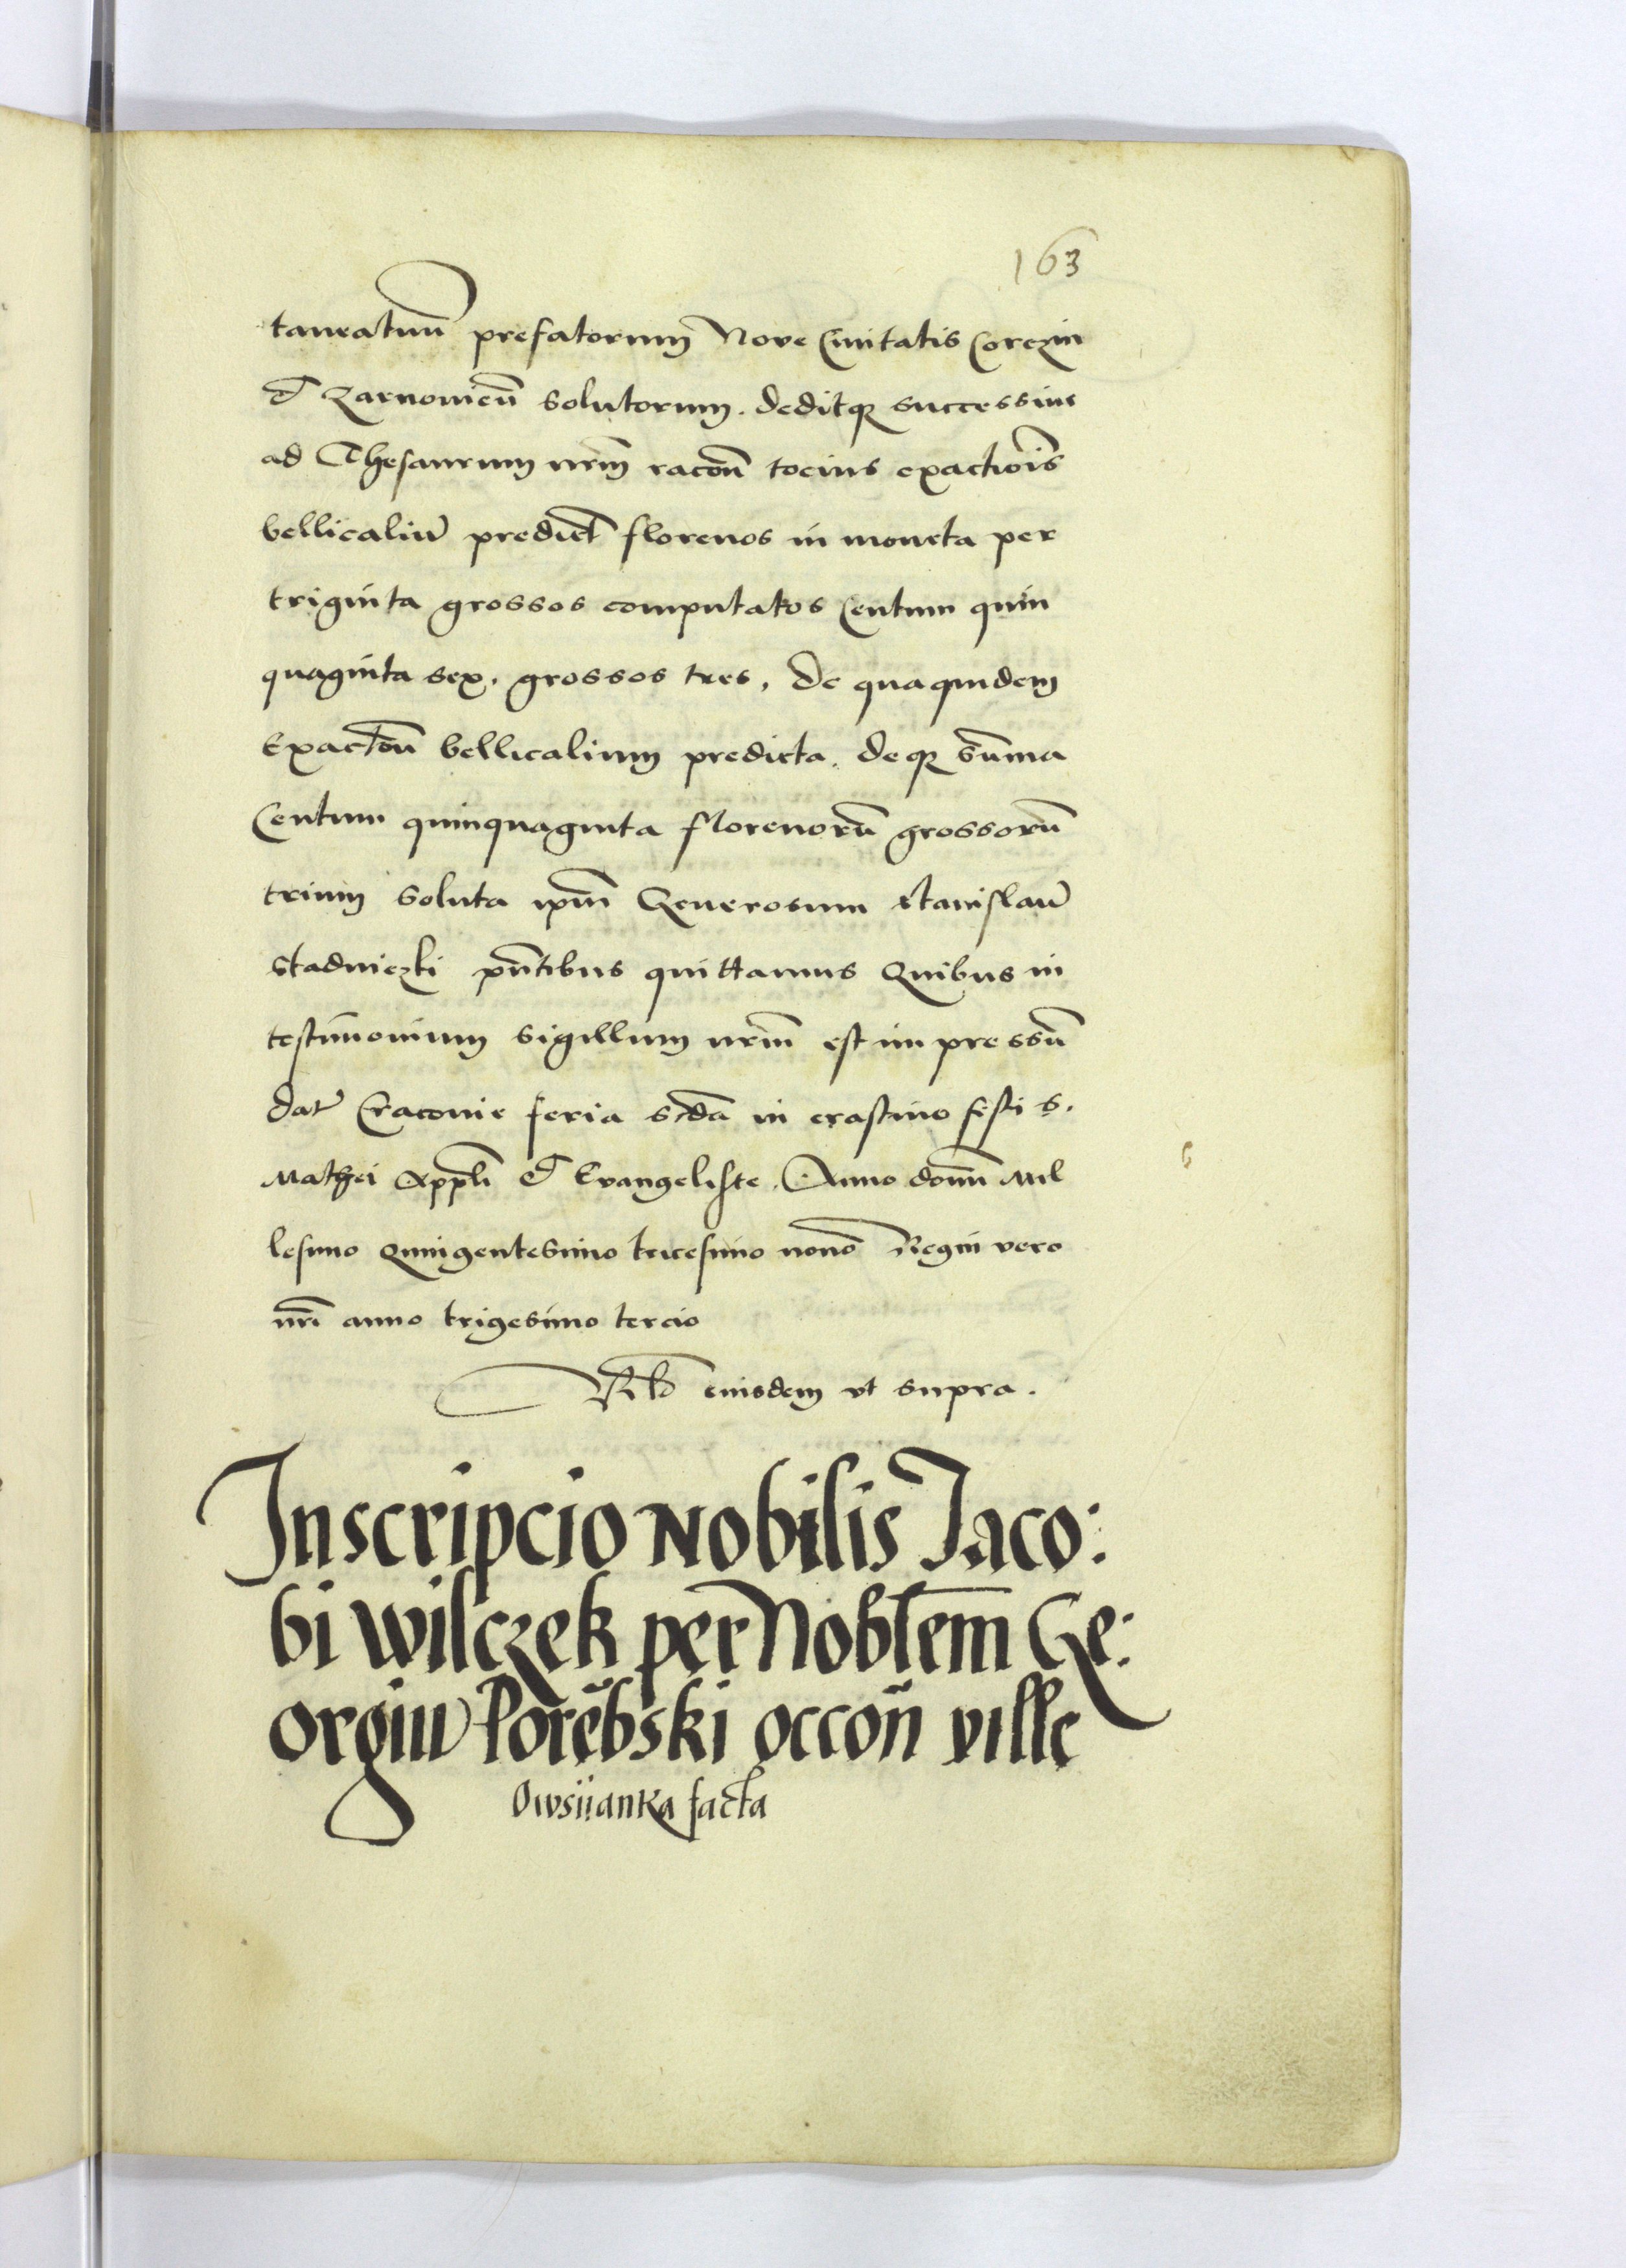 163
taneatuũ prefatorum Nove Civitatis Corczin
et Zarnovieñ solutorum. deditqꝫ successive
ad Thesaurum nrm̃ racoñ tocius exactiois̃
bellicaliũ predict̃ florenos in moneta per
triginta grossos computatos Centum quin
quaginta sex. grossos tres, de qua quidem
Exactoñ bellicalium predicta. deqꝫ sum̃a
Centum quinquaginta florenorũ grossorũ
trium soluta ipm̃ Generosum Stanislaũ
Stadniczki pñtibus quittamus Quibus in
testimonium sigillum nrm̃ est impressũ
dat̃ Cracovie feria scd̃a in crastino festi S.
Mathei Appl̃i et Evangeliste. Anno domĩ Mil
lesimo Quingentesimo tricesimo nono Regni vero
nrĩ anno trigesimo tercio
Rl̃o eiusdem vt supra.
Inscripcio Nobilis Jaco:
bi Wilczek per Nobl̃em Ge:
orgiu Porẽbski occoñ ville
Owsyanka facta